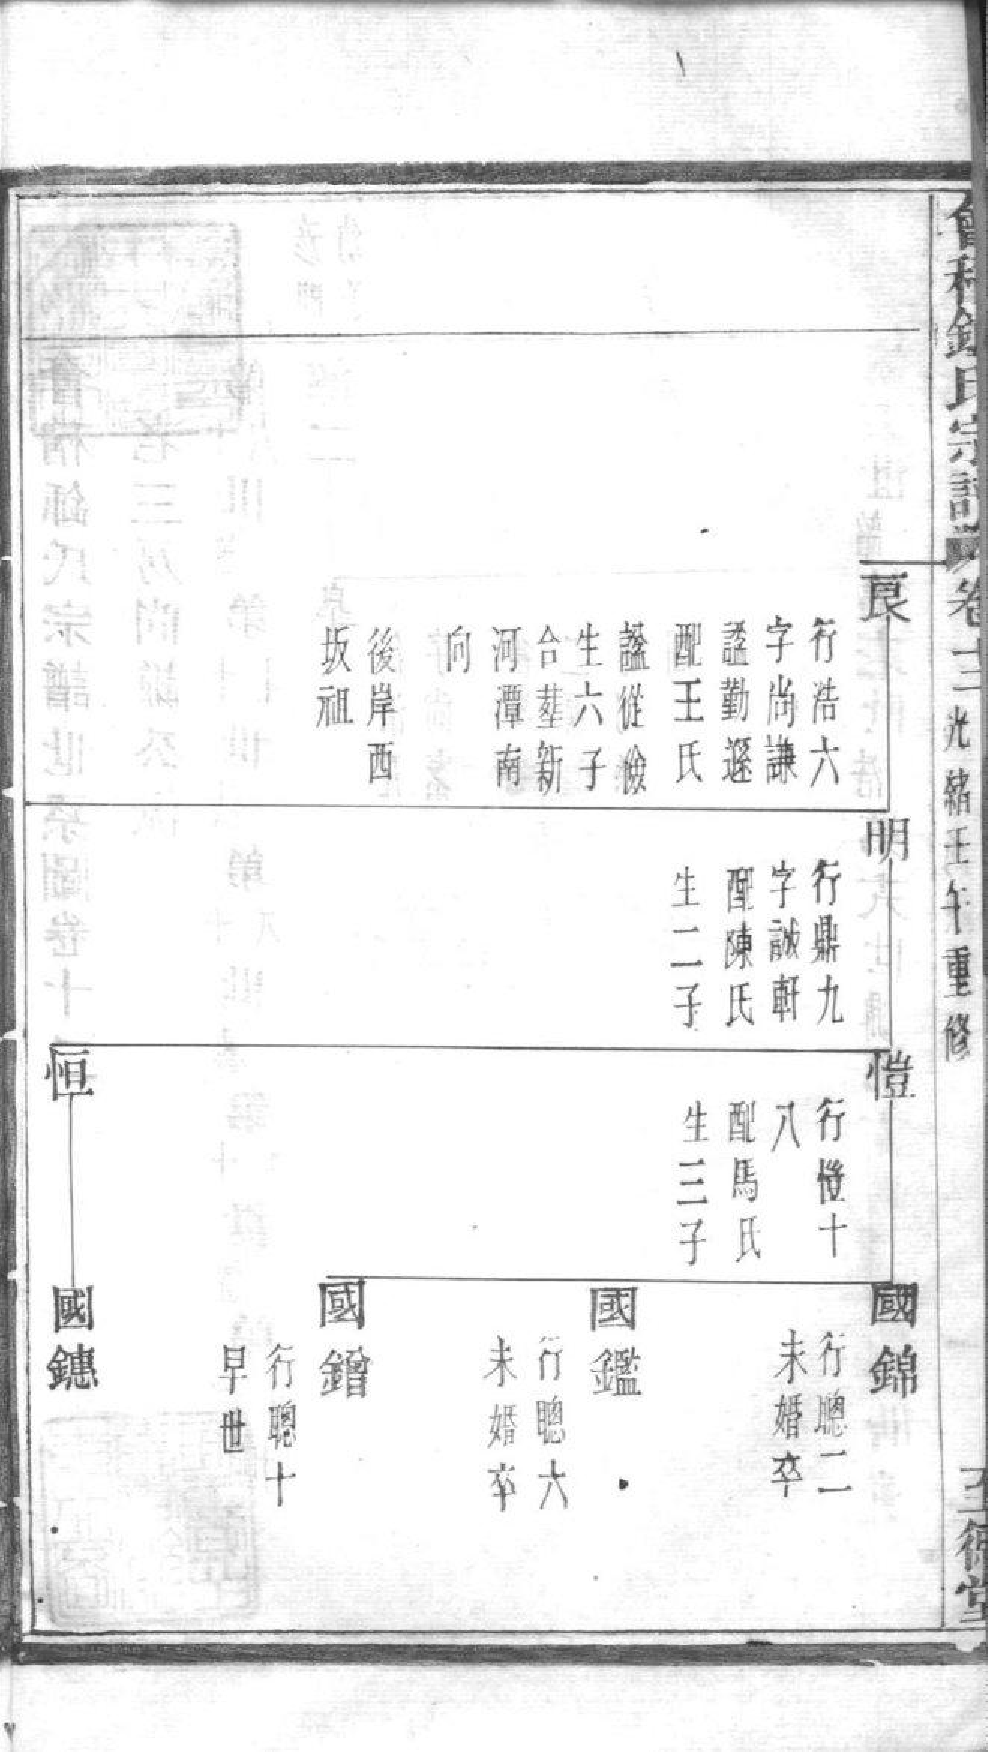 會稽鍾氏宗譜卷十二光緒壬午重修
五德堂
艮
行浩六
字尚謙
諡勤遜
配王氏
諡從儉
生六子
合塟新
河潭南
向
後岸西
坂祖
明
行鼎九
字誠軒
配陳氏
生二子
愷
行愷十
八
配馬氏
生三子
恒
國錦
行聰二
未婚卒
國鑑
行聰六
未婚卒
國鏳
行聰十
早世
國鏸